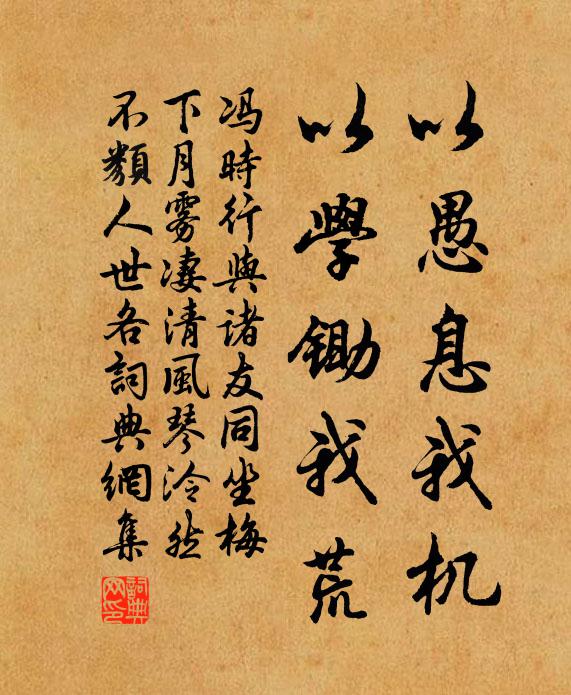 以愚息我机
以學鋤我荒
冯時行與诸友同坐梅
下月雾凄清風琴泠然
不類人世各詞典網集
詞典
网印